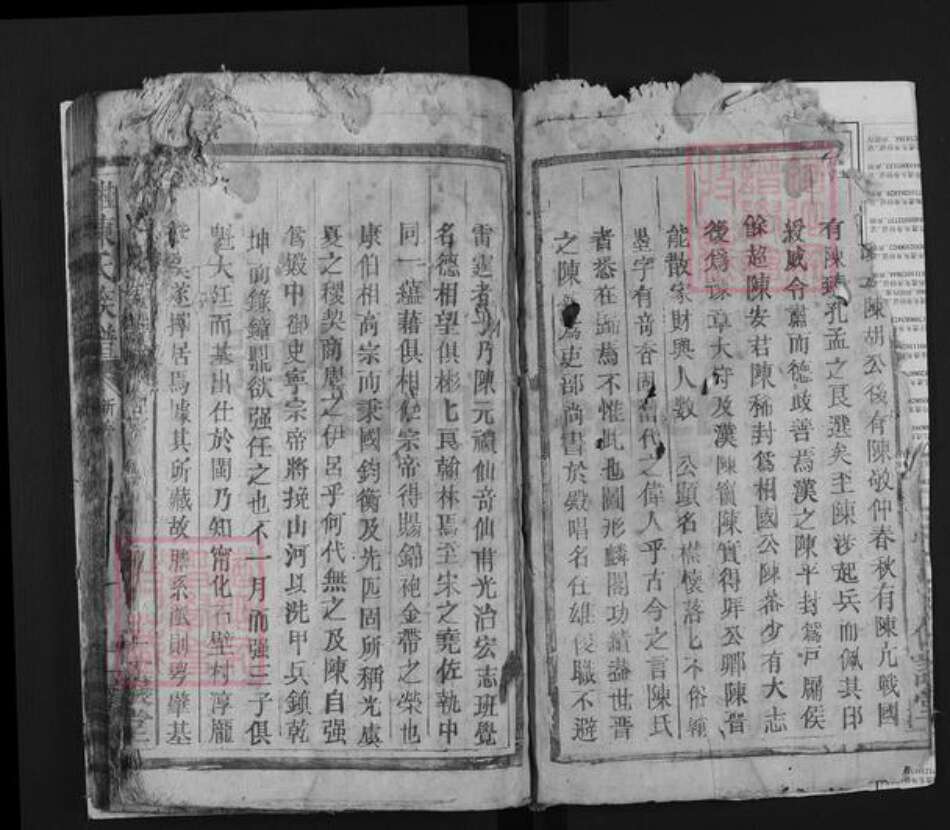 陳胡公後有陳敬仲春秋有陳亢戰國
有陳臻孔孟之良選矣至陳涉起兵而佩其印
綬威令震而德歧善焉漢之陳平封為戶牖侯
餘超陳安君陳豨封為相國公陳蕃少有大志
後為豫章太守及漢陳寔陳實得拜公卿陳晉
能散家財與人數 公顯名樵懷落七不俗
字有奇香固當代之偉人乎古今之言陳氏
者悉在焉不惟此也圖形麟閣功績盡世晋
之陳 為吏部尚書於殿唱名任雄俊職不避
雷霆者 乃陳元禮仙奇仙甫光治宏志班覺
名德相望俱彬七良翰林焉至宋之堯佐執中
同一蘊藉俱相 宗帝得賜錦袍金帶之榮也
康伯相高宗而秉國鈞衡及先匹固所稱光虞
夏之稷契商周之伊呂乎何代無之及陳自强
為殿中御史寧宗帝將挽山河以洗甲兵鎮乾
坤而錄鐘鼎欲强任之也不一月而强三子俱
大江而基出仕於閩乃知甯化石壁村淳龐
矣遂擇居焉據其所藏故勝系派則粤肇基
陳氏族譜